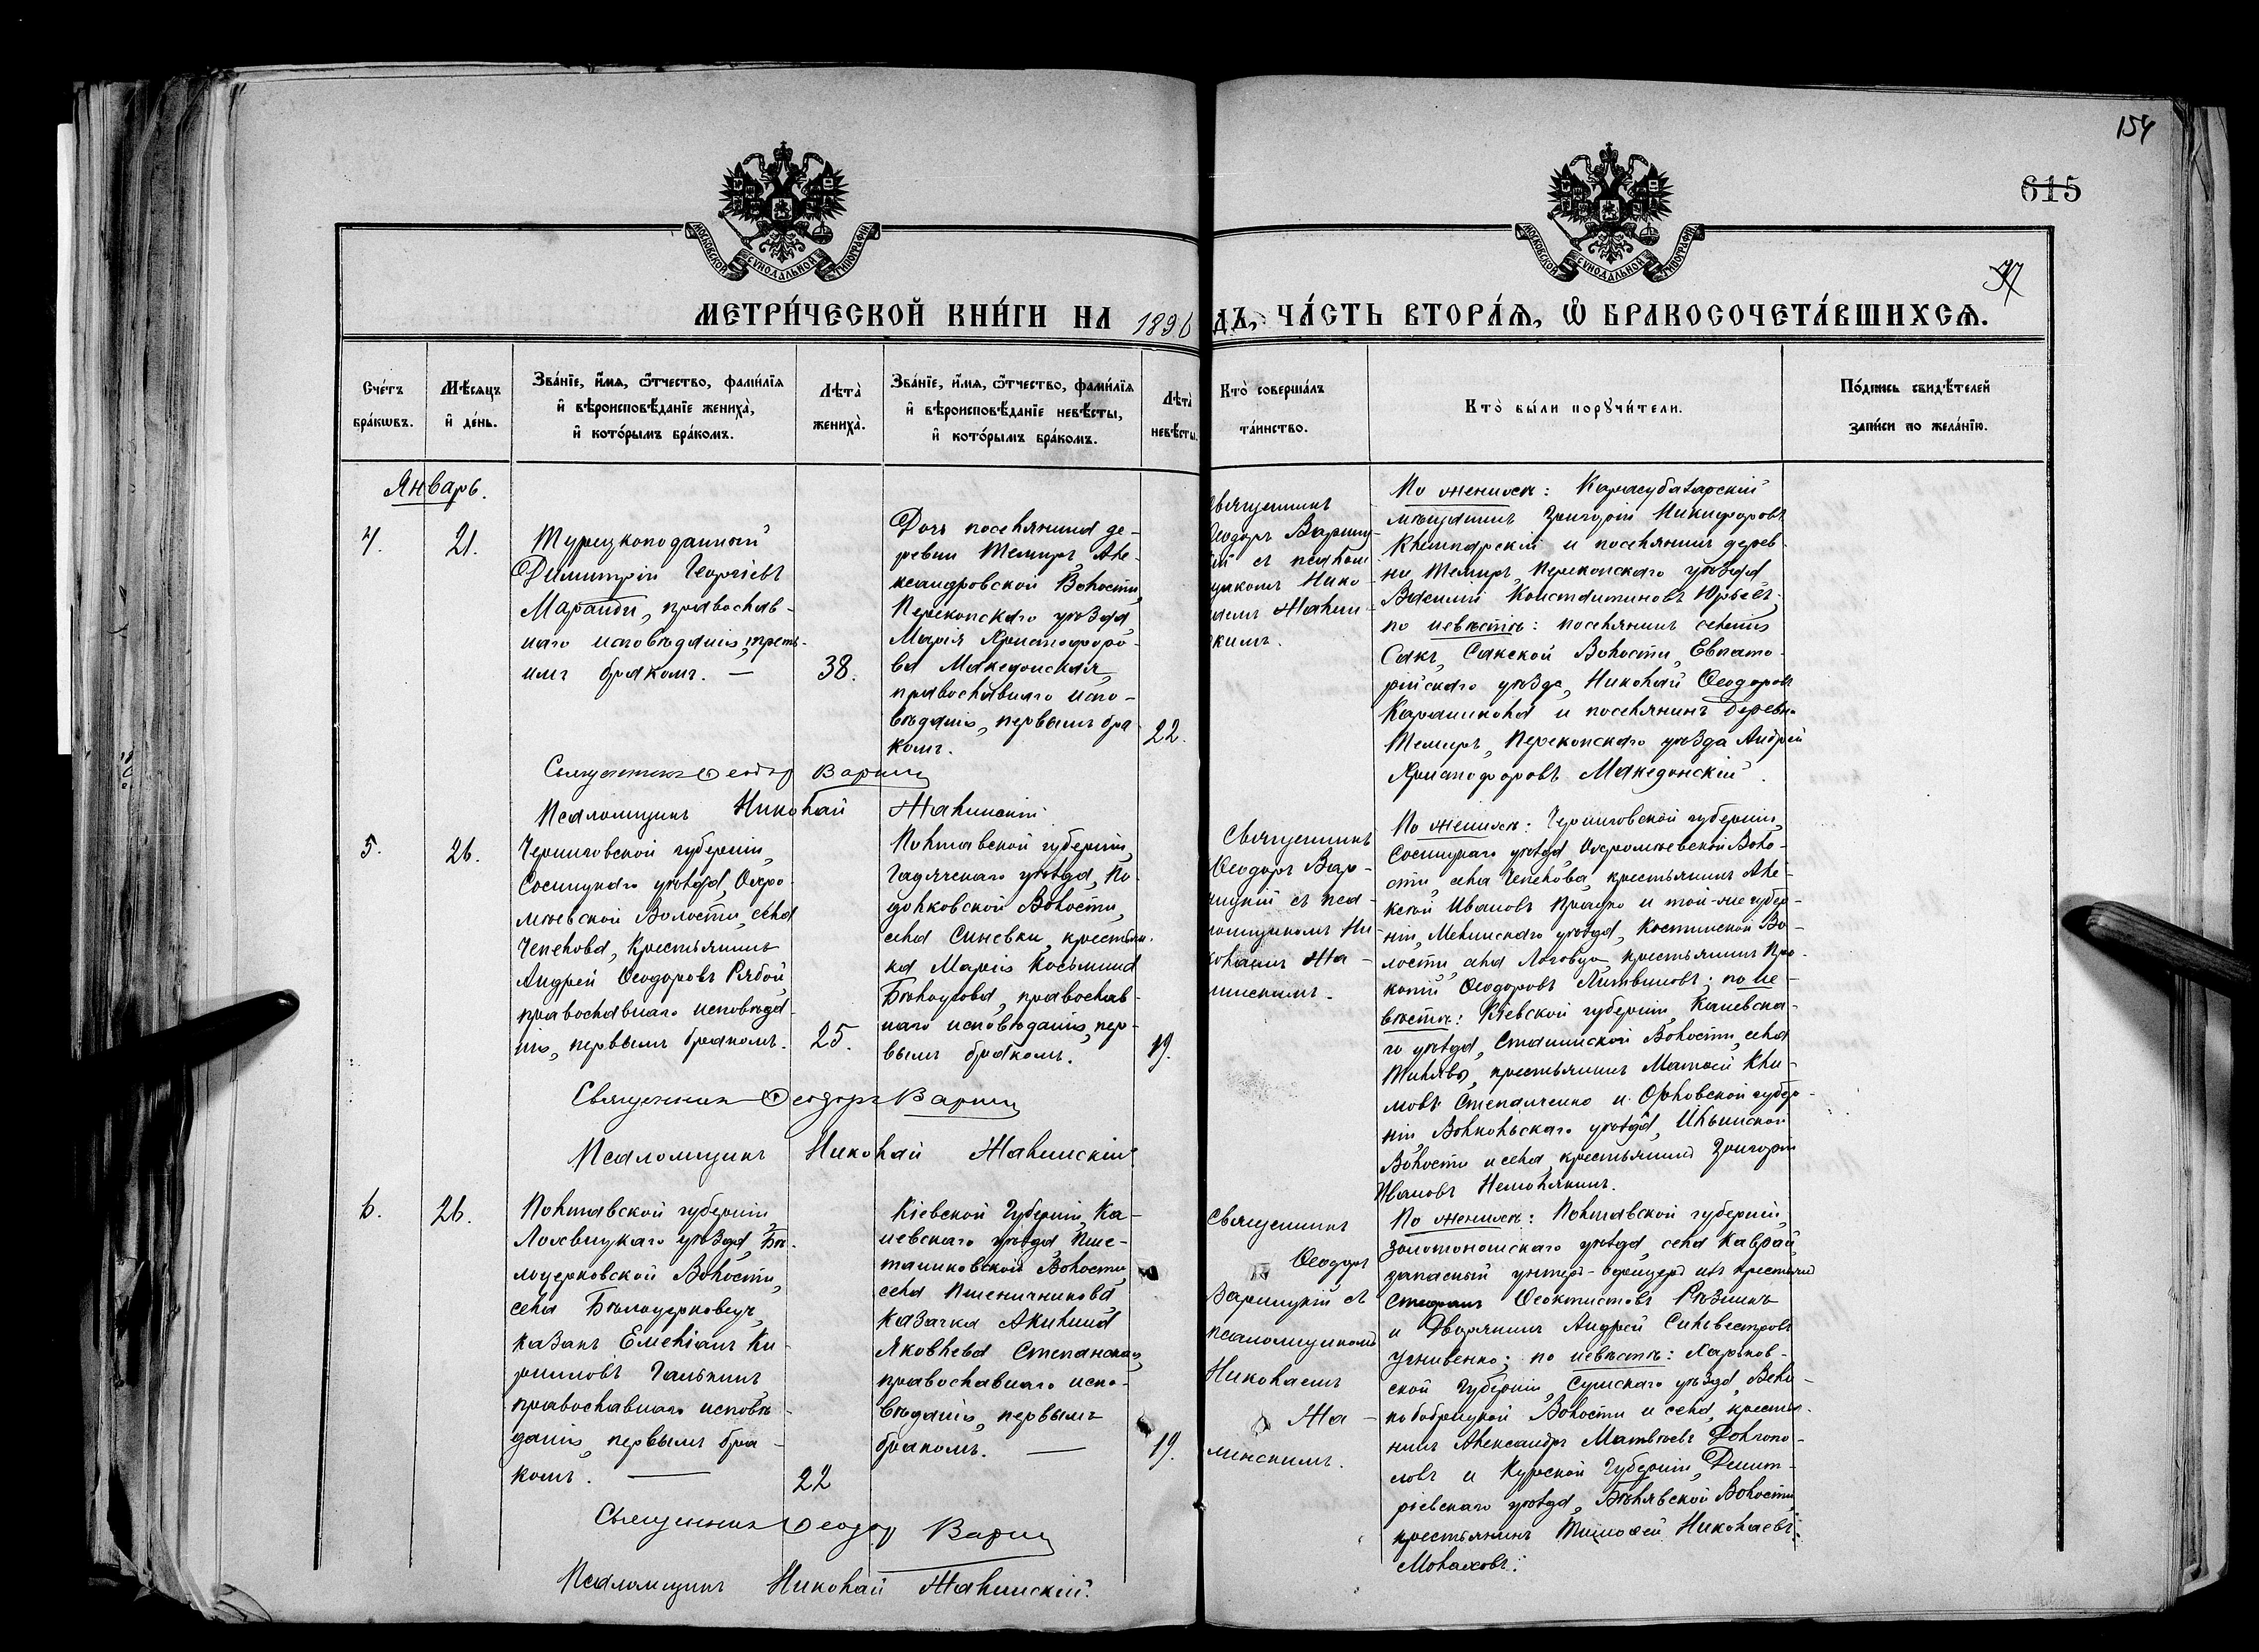 154
615
МОСКОВСКОЙ СѴНОДАЛЬНОЙ ТИПОГРАФІИ
МОСКОВСКОЙ СѴНОДАЛЬНОЙ ТИПОГРАФІИ
МЕТРИ́ЧЕСКОЙ КНИ́ГИ НА 1896
ДЪ, ЧА́СТЬ ВТОРА́Ѧ, Ѡ҆ БРАКОСОЧЕТА́ВШИХСѦ.
Сче́тъ
бра́кѡвъ.
Мѣ́сѧцъ
и҆ де́нь.
Зва́нїе, и҆́мѧ, ѻ҆́тчество, фамі́лїѧ
и҆ вѣроисповѣ́данїе жениха̀,
и҆ кото́рымъ бра́комъ.
Лѣта̀
жениха̀.
Зва́нїе, и҆́мѧ, ѻ҆́тчество, фамі́лїѧ
и҆ вѣроисповѣ́данїе невѣ́сты,
и҆ кото́рымъ бра́комъ.
Лѣта̀
невѣ́сты.
Кто̀ соверша́лъ
та́инство.
Кто̀ бы́ли порꙋчи́тели.
По́дпись свидѣ́телей
за́писи по жела́нїю.
Январь.
4.
21.
Турецкоподданный
Димитрій Георгіевъ
Маранди, православ-
наго исповѣданія, треть-
имъ бракомъ. —
38.
Дочь поселянина де-
ревни Темиръ, Але-
ксандровской Волости,
Перекопскаго уѣзда,
Марія Христофоро-
ва Македонская,
православнаго испо-
вѣданія, первымъ бра-
комъ.
22.
вященникъ
Ѳеодоръ Вариц-
ій съ псалом
щикомъ Нико
аемъ Жалин-
кимъ.
По женихѣ: Карасубазарскій
мѣщанинъ Григорій Никифоровъ
и поселянинъ дерев-
ни Темиръ, Перекопскаго уѣзда,
Василій Константиновъ Юрьевъ;
по невѣстѣ: поселянинъ селенія
Сакъ, Сакской Волости, Евпато-
рійскаго уѣзда, Николай Ѳеодоровъ
и поселянинъ деревни
Темиръ, Перекопскаго уѣзда Андрей
Христофоровъ Македонскій.
Священникъ Ѳеодор Вариц
Псаломщикъ Николай Жалинскій
5.
26.
Черниговской губерніи,
Сосницкаго уѣзда, Охро-
мѣевской Волости, села
Чепелова, крестьянинъ
Андрей Ѳеодоровъ Рябой,
православнаго исповѣда-
нія, первымъ бракомъ.
25.
Полтавской губерніи,
Гадячскаго уѣзда, По-
долковской Волости,
села Синевки, крестьян-
ка Марія Косьмина
Бѣлоусова, православ-
наго исповѣданія, пер-
вымъ бракомъ.
19.
Священникъ
Ѳеодоръ Вар-
ицкій съ пса-
ломщикомъ Ни-
колаемъ Жа-
линскимъ.
По женихѣ: Черниговской губерніи,
Сосницкаго уѣзда, Охромѣевской Воло-
сти, села Чепелова, крестьянинъ Але-
ксѣй Ивановъ и той-же губер-
ніи, уѣзда, Во-
лости, села крестьянинъ Про-
копій Ѳеодоровъ Литвиновъ; по не-
вѣстѣ: Кіевской губерніи, Каневска-
го уѣзда, Волости, села
крестьянинъ Матѳей Кли-
мовъ Степанченко и Орловской губер-
ніи, уѣзда, Ильинской
Волости и села, крестьянинъ Григорій
Ивановъ Немолякинъ.
Священник Ѳеодоръ Вариц
Псаломщикъ Николай Жалинскій
6.
26.
Полтавской губерніи,
Лохвицкаго уѣзда, Бѣ-
лоцерковской Волости,
села Бѣлоцерковецъ,
казакъ Емеліанъ Ки-
рилловъ Галькинъ
православнаго исповѣ-
данія, первымъ бра-
комъ. —
22
Кіевской Губерніи, Ка-
невскаго уѣзда, Пше-
ничниковской Волости,
села Пшеничникова
казачка Акилина
Яковлева Степанская,
православнаго испо-
вѣданія, первымъ
бракомъ. —
19.
Священникъ
Ѳеодоръ
Варицкій съ
псаломщикомъ
Николаемъ
Жа-
линскимъ.
По женихѣ: Полтавской губерніи,
Золотоношскаго уѣзда, села Каврай,
запасный унтеръ-офицеръ изъ крестьянъ
Стефанъ Ѳеоктистовъ Рѣзникъ
и Дворянинъ Андрей Сильвестровъ
Угнивенко; по невѣстѣ: Харьков-
ской Губерніи, Сумскаго уѣзда, Вели-
кобобрицкой Волости и села, крестья-
нинъ Александръ Матвѣевъ Долгопо-
ловъ и Курской Губерніи, Димит-
ріевскаго уѣзда, Волости,
крестьянинъ Тимоѳей Николаевъ
Молаховъ.
Священник Ѳеодор Вариц
Псаломщикъ Николай Жалинскій.